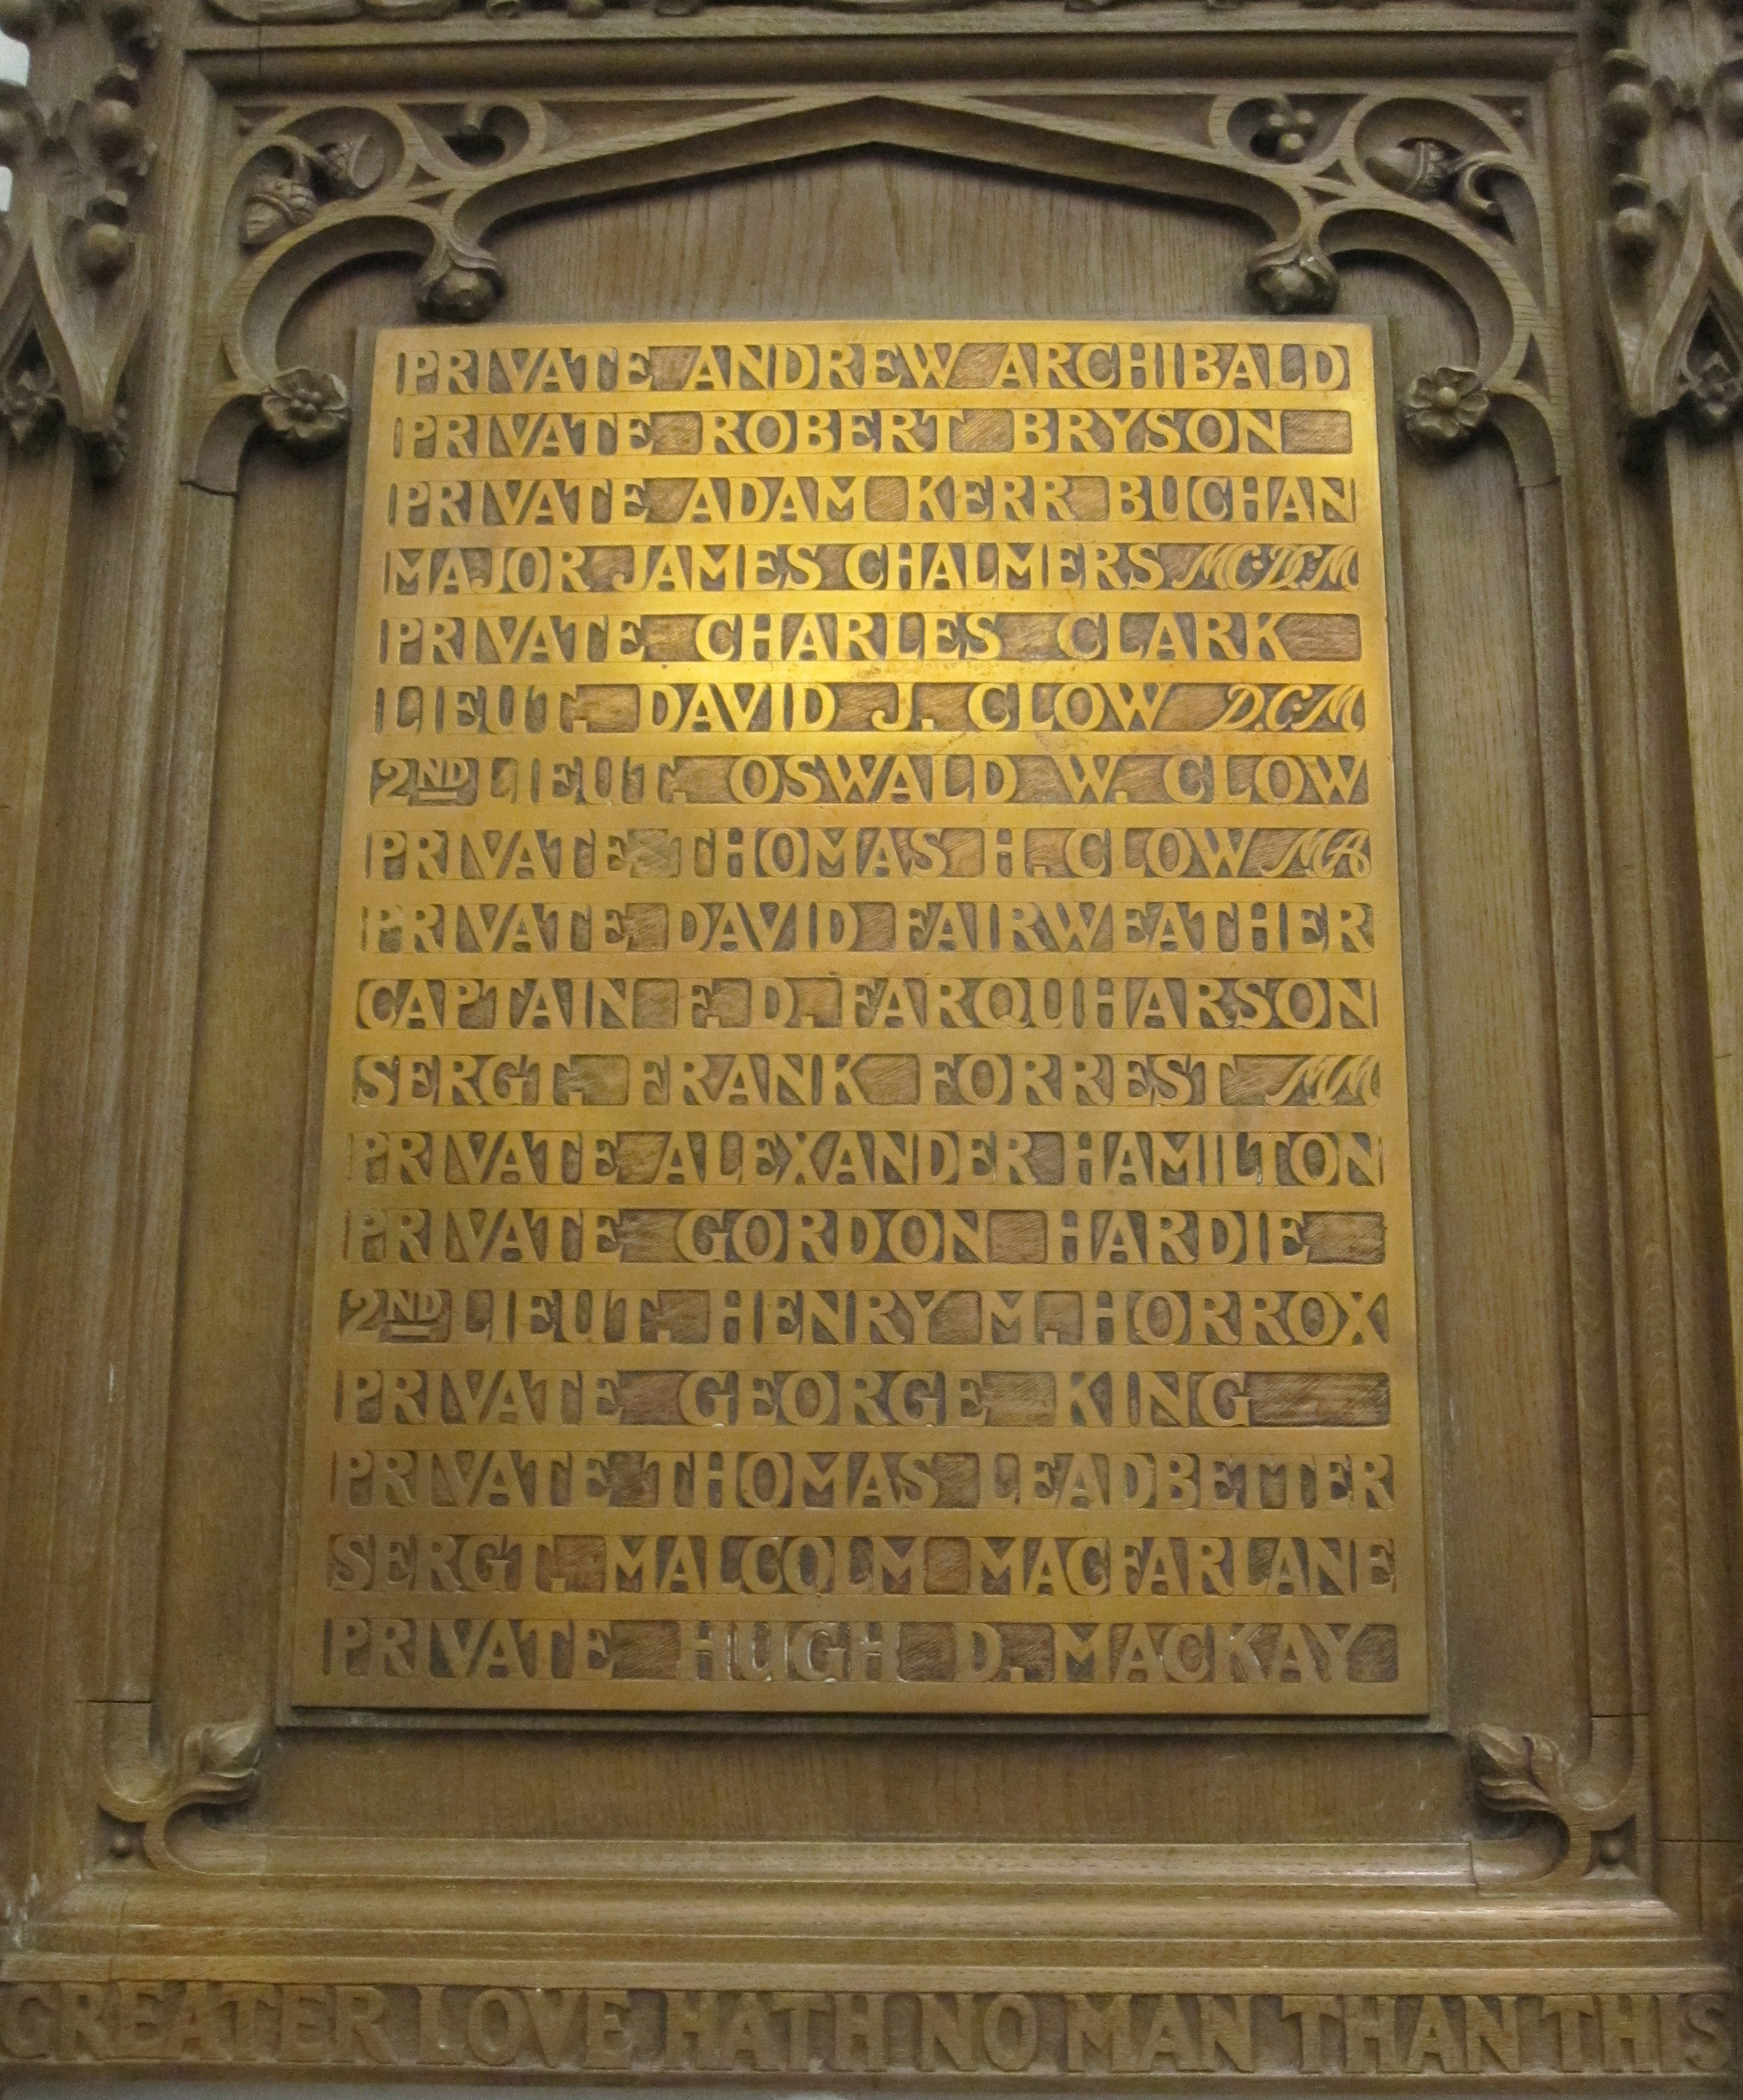 PRIVATE ANDREW ARCHIBALD
PRIVATE ROBERT BRYSON
PRIVATE ADAM KERR BUCHAN
MAJOR JAMES CHALMERS MC·DCM
PRIVATE CHARLES CLARK
LIEUT. DAVID J. CLOW D.C.M
2ND LIEUT. OSWALD W. CLOW
PRIVATE THOMAS H. CLOW MA
PRIVATE DAVID FAIRWEATHER
CAPTAIN F. D. FARQUHARSON
SERGT. FRANK FORREST MM
PRIVATE ALEXANDER HAMILTON
PRIVATE GORDON HARDIE
2ND LIEUT. HENRY M. HORROX
PRIVATE GEORGE KING
PRIVATE THOMAS LEADBETTER
SERGT. MALCOLM MACFARLANE
PRIVATE HUGH D. MACKAY
GREATER LOVE HATH NO MAN THAN THIS